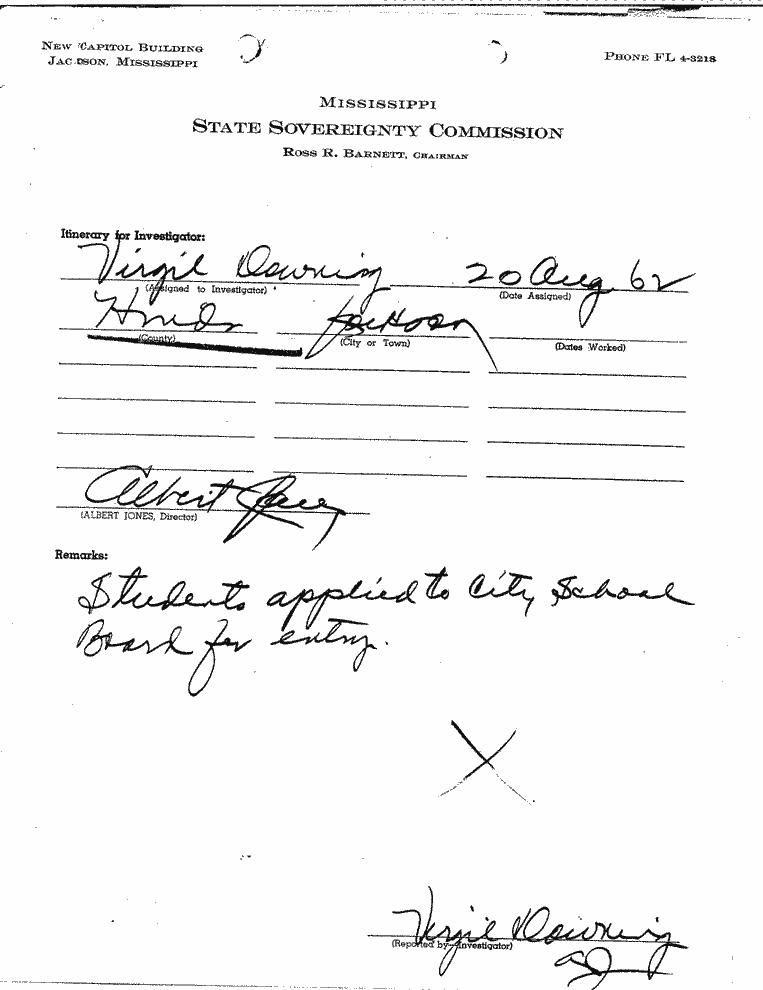 NEW CAPITOL BUILDING
JACKSON, MISSISSIPPI
PHONE FL 4-3218
MISSISSIPPI
STATE SOVEREIGNTY COMMISSION
ROSS R. BARNETT, CHAIRMAN
Itinerary for Investigator:
Virgil Downing 20 Aug 62
(Assigned to Investigator) (Date Assigned)
Hinds Jackson
(County) (City or Town) (Dates Worked)
Albert Jones
(ALBERT JONES, Director)
Remarks:
Students applied to City School
Board for entry.
Virgil Downing
(Reported by Investigator)